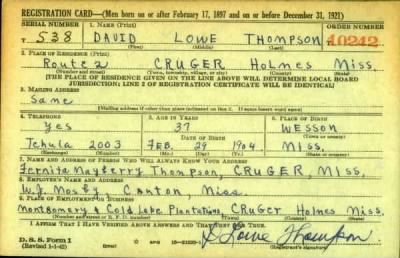 REGISTRATION CARD—(Men born on or after February 17, 1897 and on or before December 31, 1921)
SERIAL NUMBER 1. NAME (Print) ORDER NUMBER
T 538 DAVID LOWE THOMPSON 10242
(First) (Middle) (Last)
2. PLACE OF RESIDENCE (Print)
Route 2 CRUGER Holmes Miss.
(Number and street) (Town, township, village, or city) (County) (State)
[THE PLACE OF RESIDENCE GIVEN ON THE LINE ABOVE WILL DETERMINE LOCAL BOARD
JURISDICTION; LINE 2 OF REGISTRATION CERTIFICATE WILL BE IDENTICAL]
3. MAILING ADDRESS
Same
[Mailing address if other than place indicated on line 2. If same insert word same]
4. TELEPHONE 5. AGE IN YEARS 6. PLACE OF BIRTH
Yes 37 WESSON
DATE OF BIRTH
Tchula 2003 FEB. 29 1904 MISS.
7. NAME AND ADDRESS OF PERSON WHO WILL ALWAYS KNOW YOUR ADDRESS
Mayberry Thompson, CRUGER, MISS.
8. EMPLOYER'S NAME AND ADDRESS
W.J. Mosby Canton, Miss
9. PLACE OF EMPLOYMENT OR BUSINESS
Montgomery & Cold Lake Plantations, CRUGER Holmes Miss.
(Number and street or R. F. D. number) (Town) (County) (State)
I AFFIRM THAT I HAVE VERIFIED ABOVE ANSWERS AND THAT THEY ARE TRUE.
D. S. S. Form 1
(Revised 1-1-42) (over) D. Lowe Thompson
(Registrant's signature)